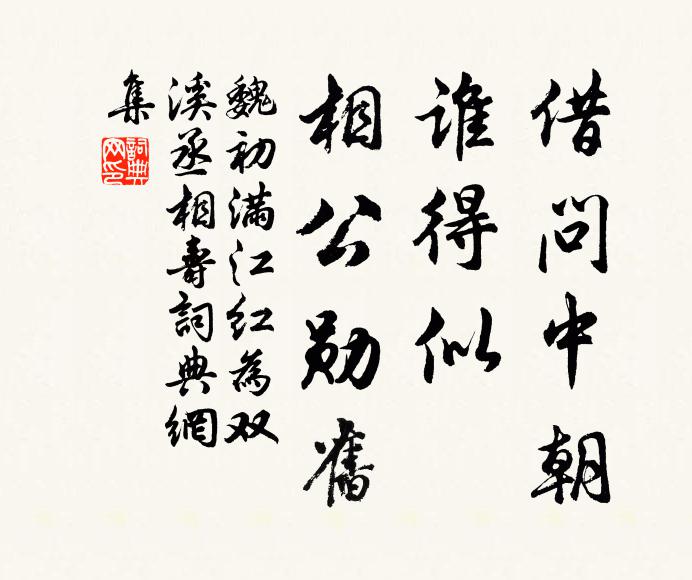 借问中朝
谁得似
相公勋旧
魏初满江红为双
溪丞相寿词典网
集
词典网印